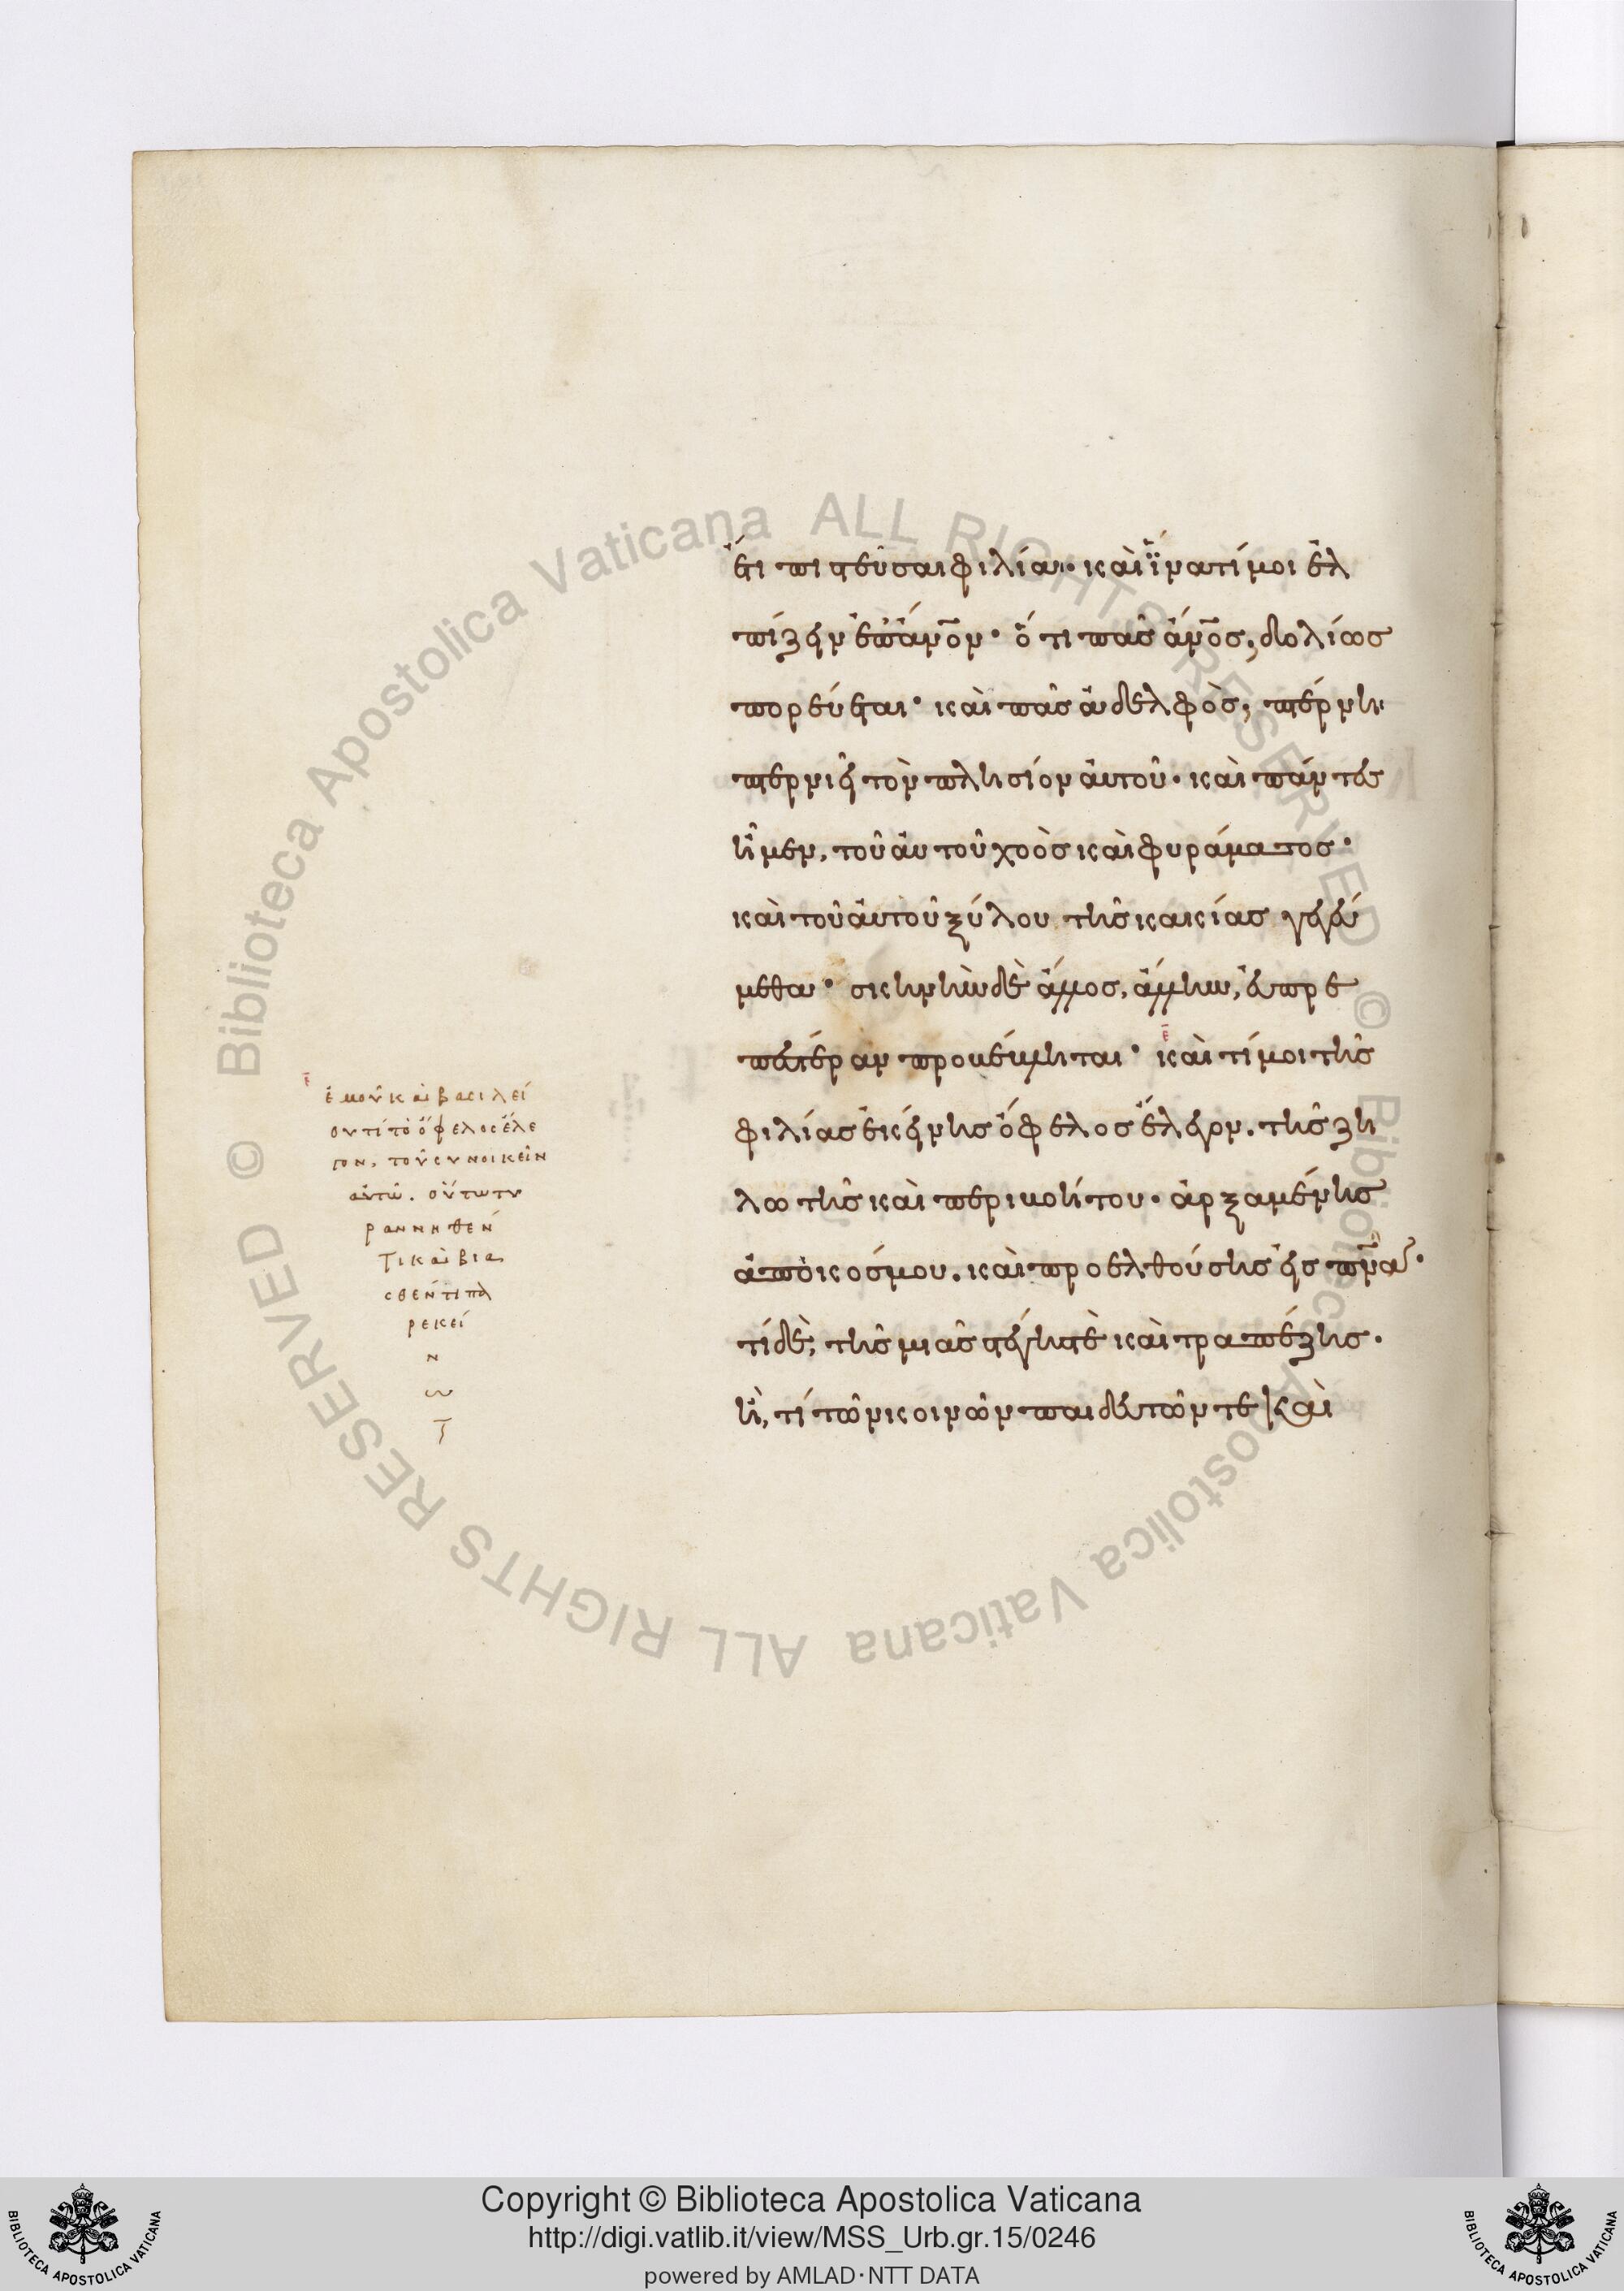 ἔτι πιστεῦσαι φιλία· καὶ ἵνα τί μοι ἐλ
πίζειν ἐπ' ἄνον· ὅτι πᾶς ἄνος, δολίως
πορεύεται· καὶ πᾶς ἀδελφὸς, πτέρνη
πτερνιεῖ τὸν πλησίον αὐτοῦ. καὶ πάντες
ἦμεν, τοῦ αὐτοῦ χοὸς καὶ φυράματος·
καὶ τοῦ αὐτοῦ ξύλου τῆς κακίας γεγεύ
μεθα· σκηνὴν δὲ ἄλλος, ἄλλην, εὐπρε
πεστέραν προβέβληται· καὶ τί μοι τῆς
φιλίας ἐκείνης ὄφελος εἶπον. τῆς ζη
λωτῆς καὶ περιβοήτου. ἀρξαμένης
ἀπὸ κόσμου. καὶ προελθούσης εἰς πνα·
τί δὲ, τῆς μιᾶς στέγης τὲ καὶ τραπέζης.
ἢ, τί τῶν κοινῶν παιδευτῶν τε καὶ
ἐμοῦ καὶ βασιλεί
ου τί τὸ ὄφελος ἔλε
γον, τοῦ συνοικεῖν
αὐτῶ. οὕτω τυ
ραννηθέν
τι καὶ βια
σθέντι πα
ρ' ἐκεί
ν
ω
τ
Copyright © Biblioteca Apostolica Vaticana
http://digi.vatlib.it/view/MSS_Urb.gr.15/0246
powered by AMLAD·NTT DATA
© Biblioteca Apostolica Vaticana ALL RIGHTS RESERVED
© Biblioteca Apostolica Vaticana ALL RIGHTS RESERVED
BIBLIOTECA APOSTOLICA VATICANA
BIBLIOTECA APOSTOLICA VATICANA